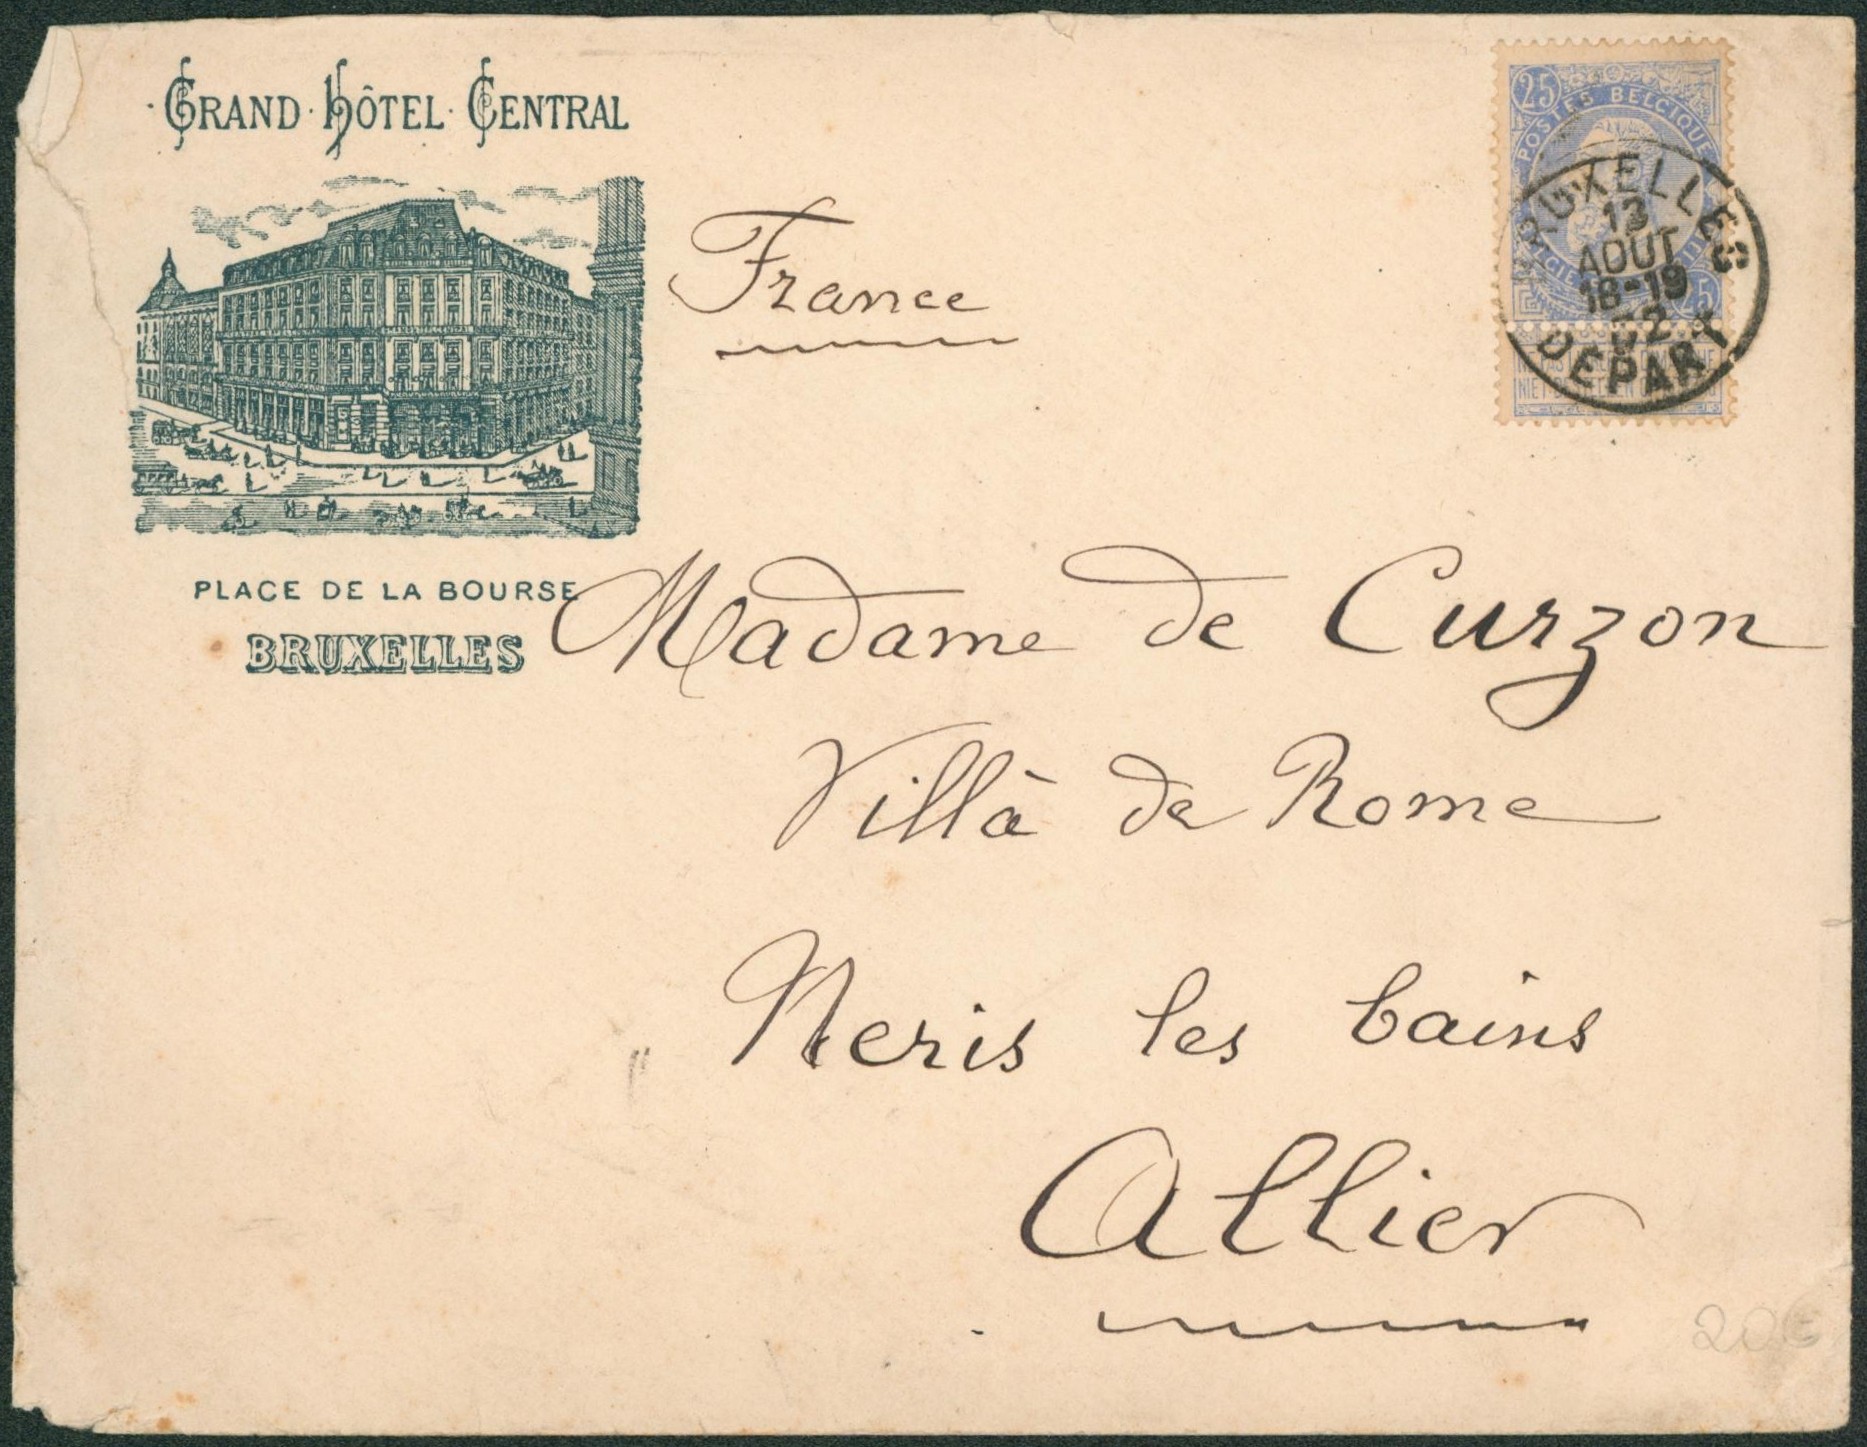 GRAND HÔTEL CENTRAL
PLACE DE LA BOURSE
BRUXELLES
France
25
POSTES BELGIQUE
BRUXELLES
13
AOUT
18-19
DEPART
Madame de Curzon
Villà de Rome
Neris les bains
Allier
20€